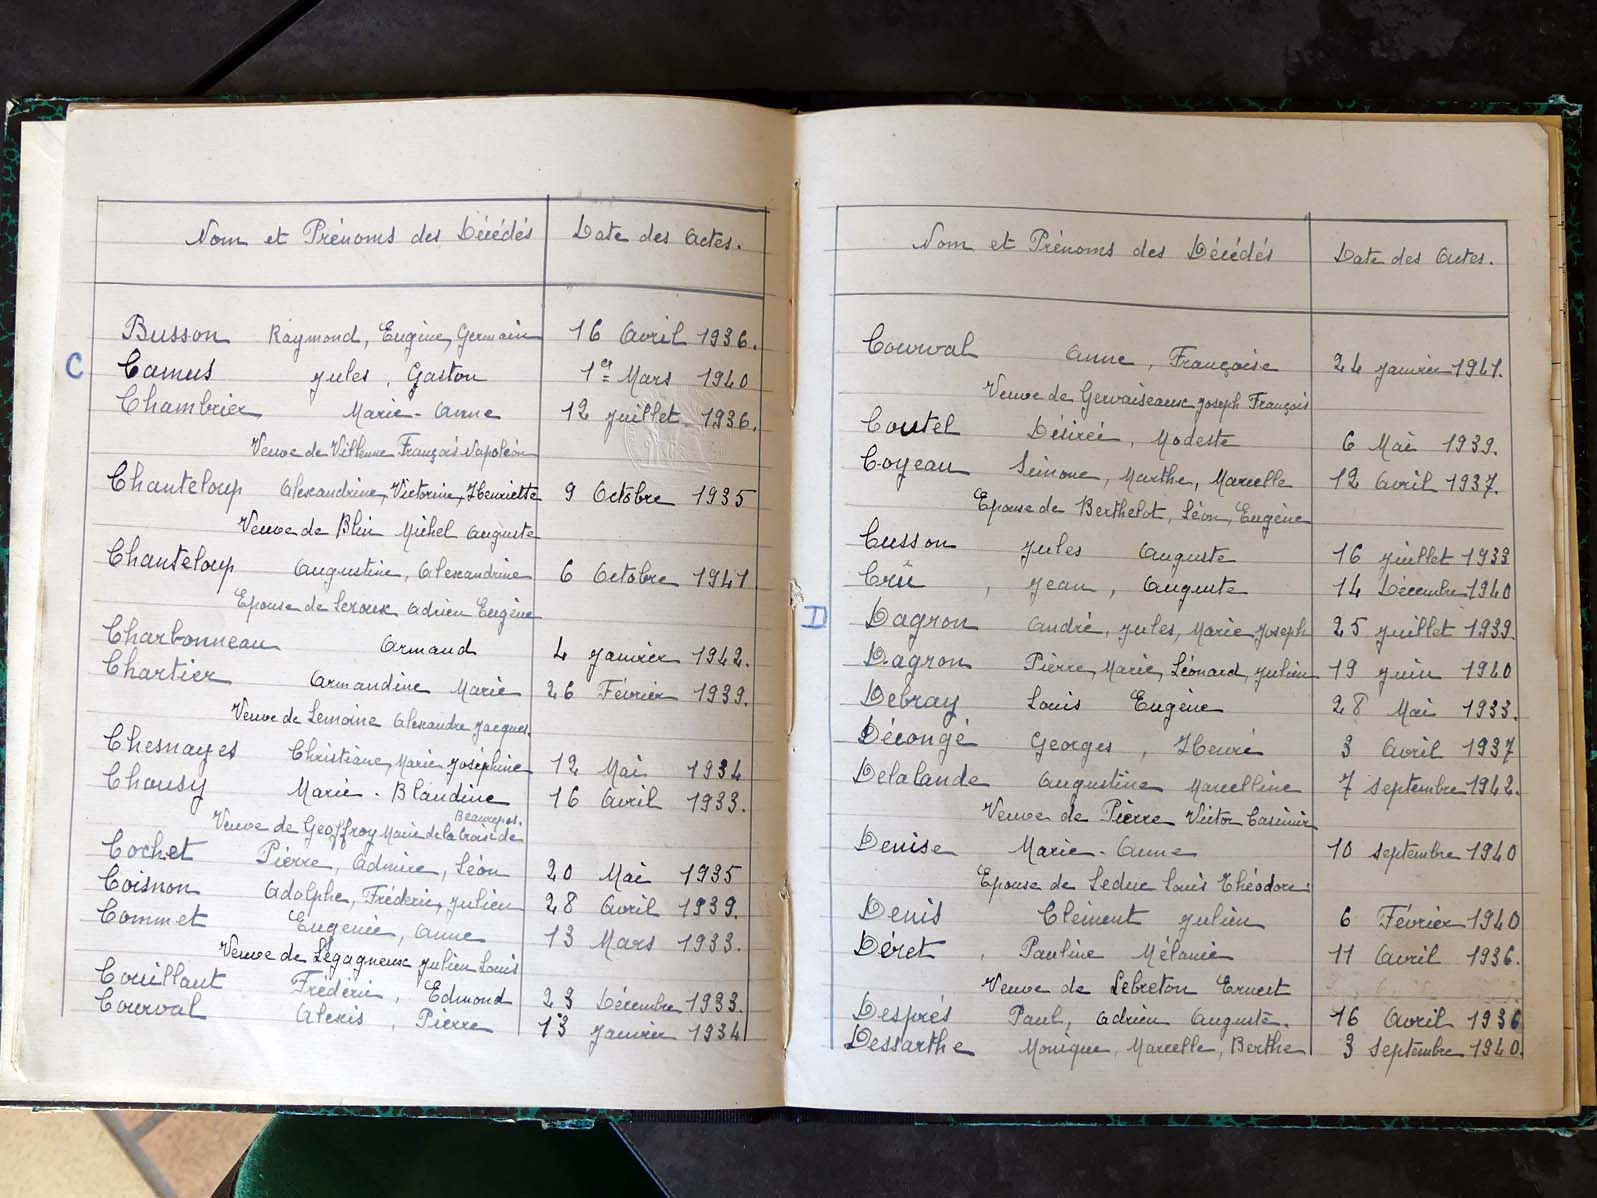 Nom et Prénoms des Décédés Date des Actes.
Busson Raymond, Eugène, Germain 16 Avril 1936.
C
Camus Jules, Gaston 1er Mars 1940
Chambrier Marie-Anne 12 Juillet 1936.
Veuve de Villenne François Napoléon
Chanteloup Alexandrine, Victorine, Henriette 9 Octobre 1935
Veuve de Blin Michel Auguste
Chanteloup Augustine, Alexandrine 6 Octobre 1941
Epouse de Leroux Adrien Eugène
Charbonneau Armand 4 Janvier 1942.
Chartier Armandine Marie 26 Février 1939.
Veuve de Lemoine Alexandre Jacques.
Chesnayes Christiane, Marie Joséphine 12 Mai 1934
Chousy Marie-Blandine 16 Avril 1933.
Veuve de Geoffroy Marie de la Croix de Beaurepos.
Cochet Pierre, Admire, Léon 20 Mai 1935
Coisnon Adolphe, Frédéric, Julien 28 Avril 1939.
Commet Eugénie, Anne 13 Mars 1933.
Veuve de Légagneux Julien Louis
Couillaut Frédéric, Edmond 23 Décembre 1933.
Courval Alexis, Pierre 13 Janvier 1934
Nom et Prénoms des Décédés Date des Actes.
Courval Anne, Françoise 24 Janvier 1941.
Veuve de Gervaiseaux Joseph François
Coutel Désirée, Modeste 6 Mai 1939.
Coyeau Simone, Marthe, Marcelle 12 Avril 1937.
Epouse de Berthelot, Léon, Eugène
Cusson Jules Auguste 16 Juillet 1933
Crû, Jean, Auguste 14 Décembre 1940
D
Dagron André, Jules, Marie Joseph 25 Juillet 1939.
Dagron Pierre, Marie, Léonard, Julien 19 Juin 1940
Debray Louis Eugène 28 Mai 1933.
Décongé Georges, Henri 3 Avril 1937
Delalande Augustine Marcelline 7 Septembre 1942.
Veuve de Pierre Victor Casimir
Denise Marie-Anne 10 Septembre 1940
Epouse de Leduc Louis Théodore
Denis Clément Julien 6 Février 1940
Déret, Pauline Mélanie 11 Avril 1936.
Veuve de Lebreton Ernest
Desprès Paul, Adrien Auguste. 16 Avril 1936
Dessarthe Monique, Marcelle, Berthe 3 Septembre 1940.